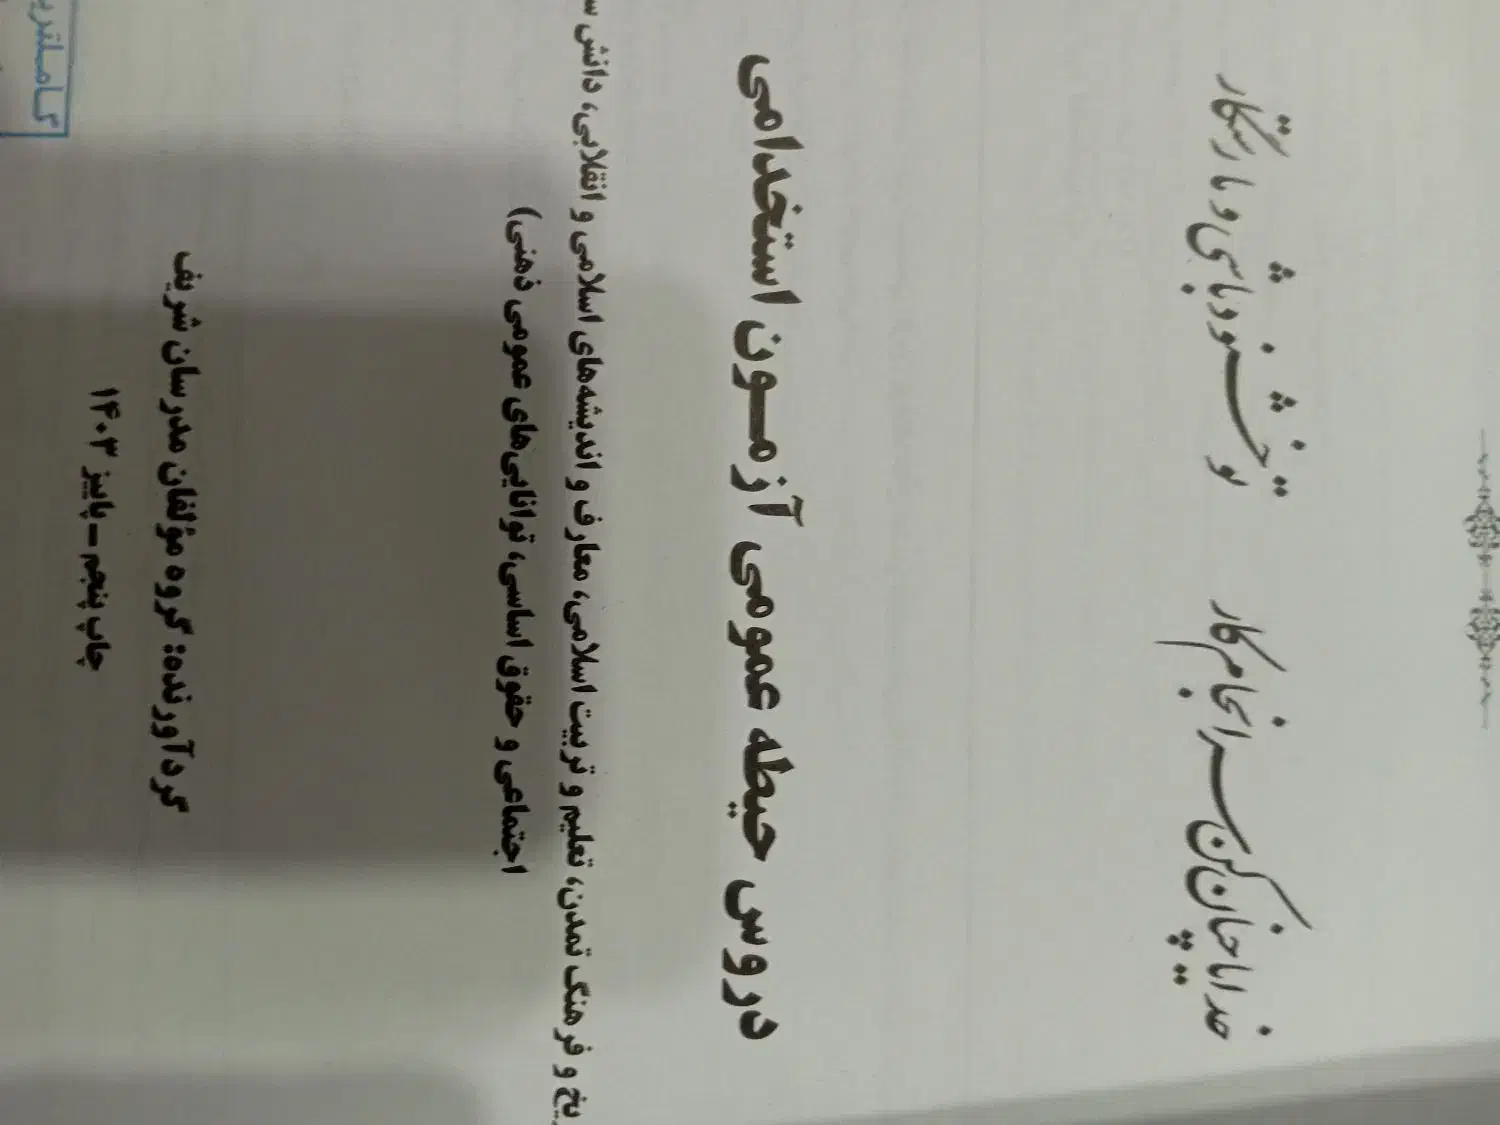 خدایا چنان کن سرانجام کار تو خشنود باشی و ما رستگار
دروس حیطه عمومی آزمون استخدامی
و فرهنگ تمدن، تعلیم و تربیت اسلامی، معارف و اندیشه‌های اسلامی و انقلابی، دانش
اجتماعی و حقوق اساسی، توانایی‌های عمومی ذهنی)
گردآورنده: گروه مؤلفان مدرسان شریف
چاپ پنجم – پاییز ۱۴۰۳